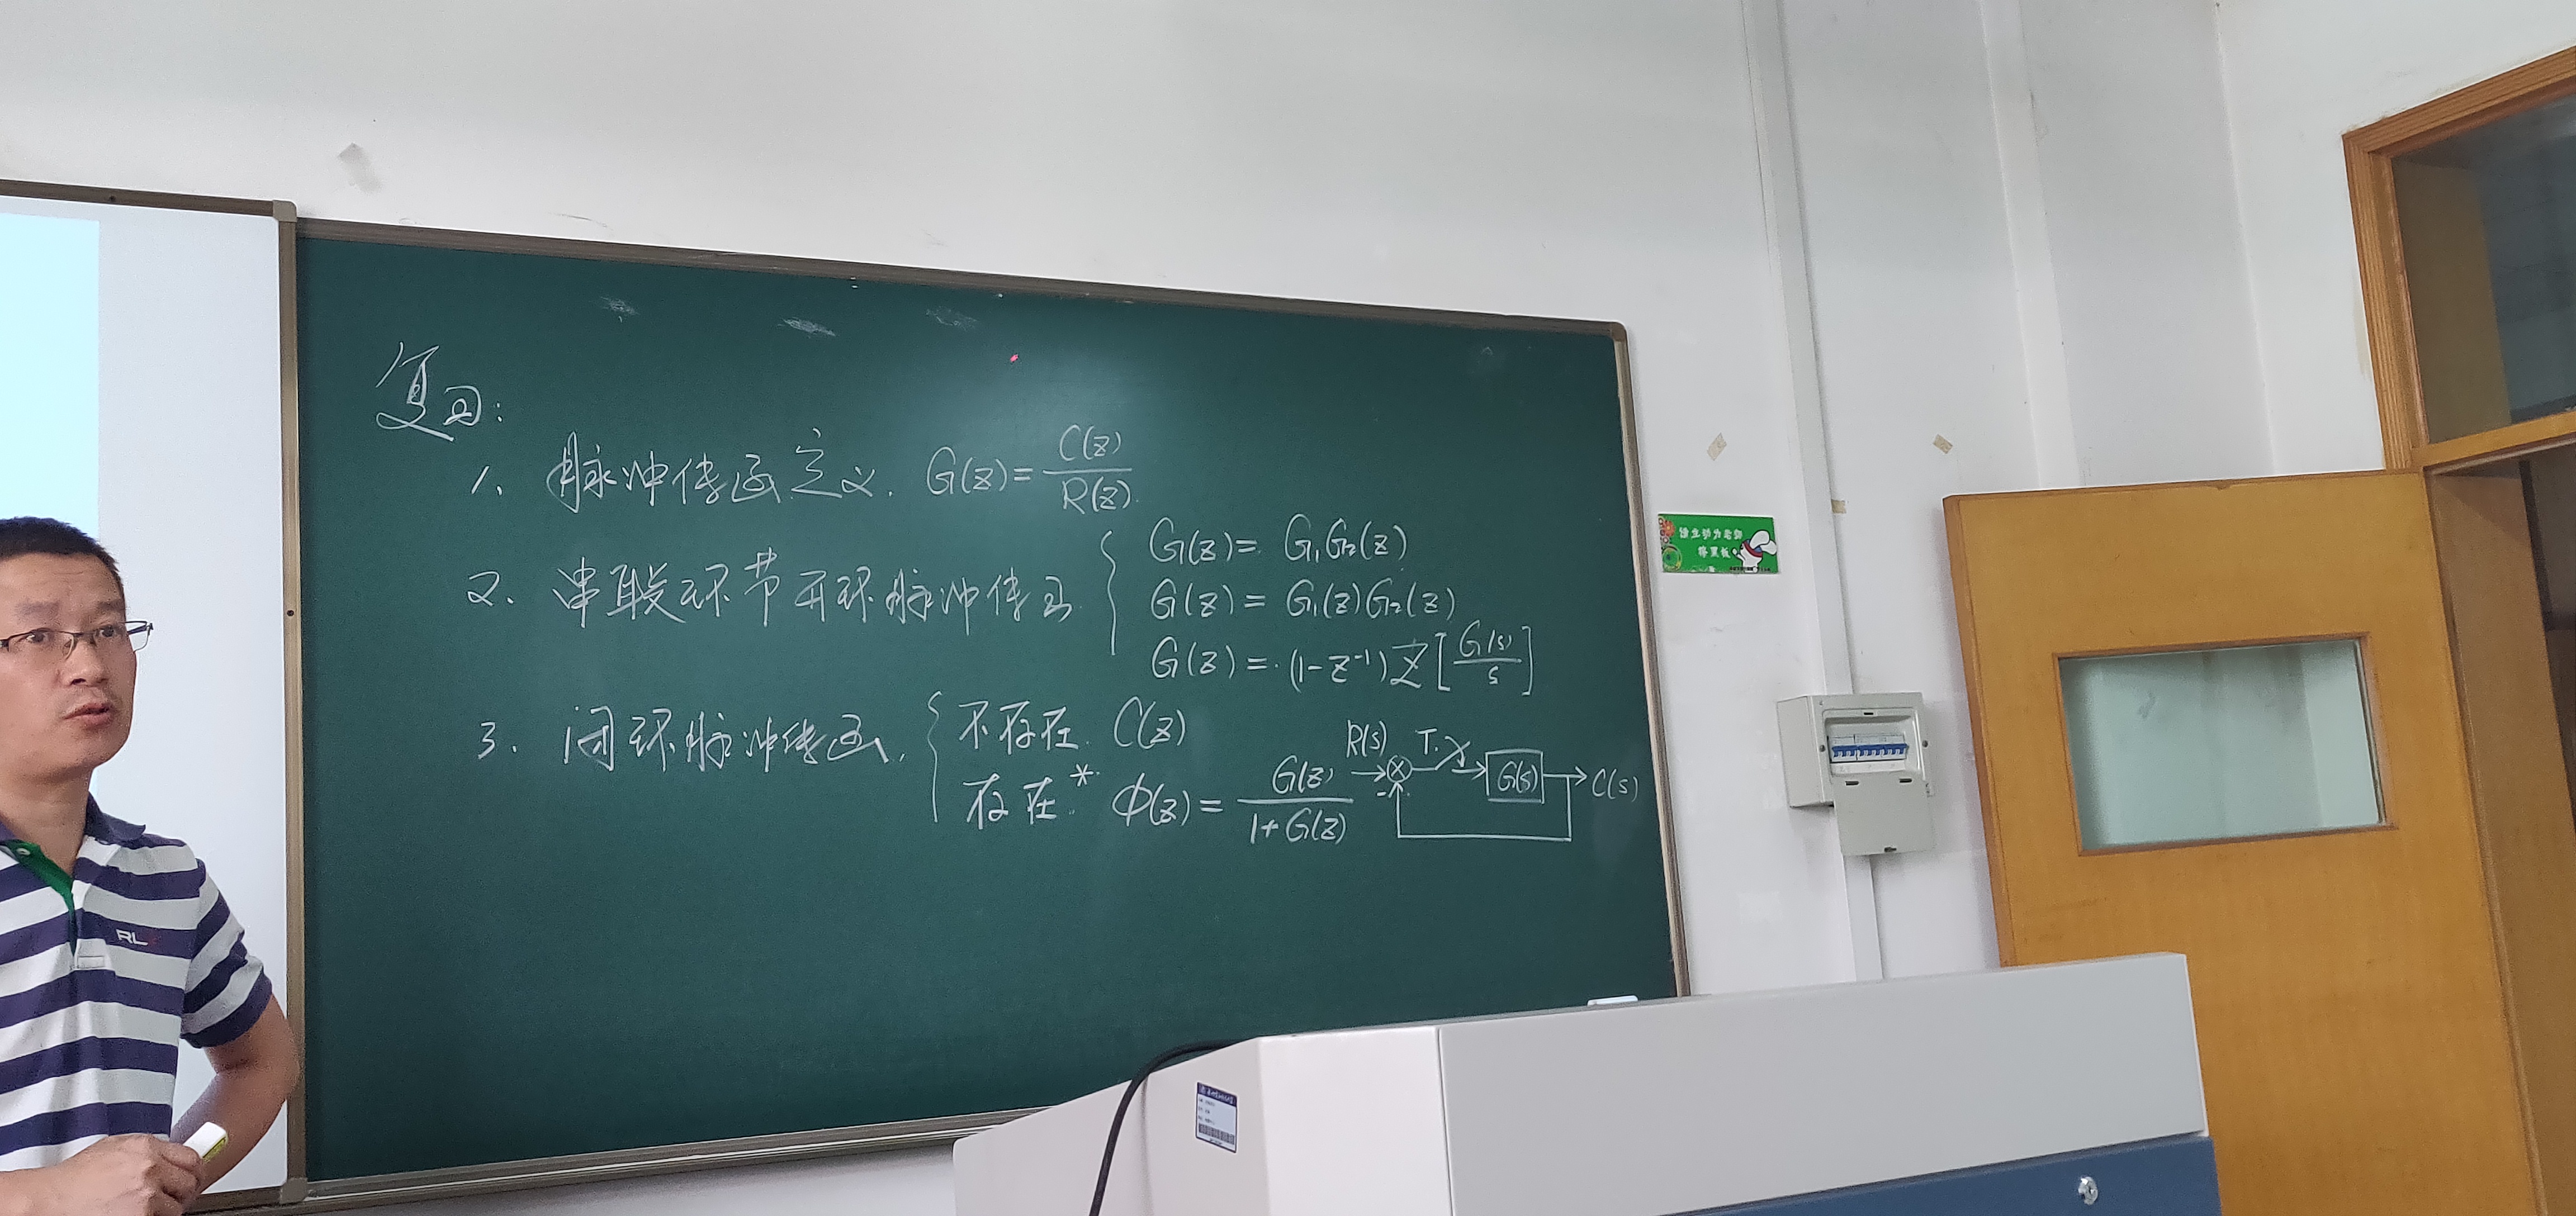 复习:
1. 脉冲传函定义. G(z)= C(z)/R(z).
2. 串联环节开环脉冲传函
G(z)= G₁G₂(z)
G(z)= G₁(z)G₂(z)
G(z)= (1-z⁻¹)Z[G(s)/s]
3. 闭环脉冲传函.
不存在. C(z)
存在.* Φ(z)= G(z)/1+G(z)
R(s) T. G(s) C(s)
-
RL